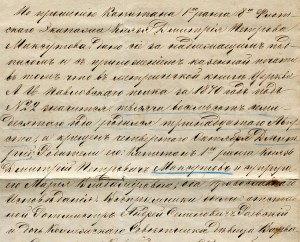 По прошению Капитана 1го ранга 8го Флот-
скаго Экипажа Князя Димитрія Петрова
Максутова дано сіе за надлежащимъ под-
писомъ и съ приложеніемъ казенной печати
въ томъ что въ метрической книгѣ Церкви
Л. Гв. Павловскаго полка за 1870 годъ подъ
№22 значится: тысяча восемьсотъ семи
десятаго года родился тринадцатаго Авгу
ста, а крещенъ четвертаго Октября Димит
рій Родители его Капитанъ 1го ранга Князь
Димитрій Петровичъ Максутовъ и супруга
его Марія Владиміровна, оба православнаго
Исповѣданія. Воспріемники
и дочь Коллежскаго Совѣтника дѣвица